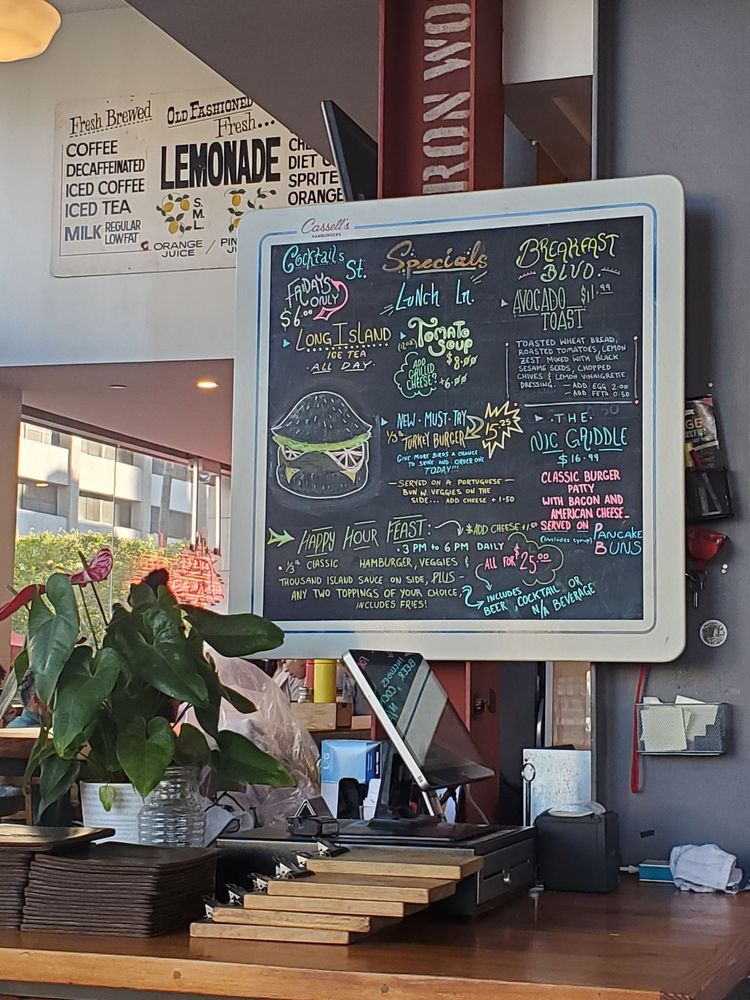 Fresh Brewed
COFFEE
DECAFFEINATED
ICED COFFEE
ICED TEA
MILK REGULAR
LOWFAT
OLD FASHIONED
Fresh...
LEMONADE
S.
M.
L.
ORANGE
JUICE /
DIET
SPRITE
ORANGE
RON WO
Cassell's
HAMBURGERS
Cocktails
St.
FRIDAYS
ONLY
$6.00
LONG ISLAND
ICE TEA
ALL DAY
Specials
Lunch Ln.
TOMATO
SOUP
$8.00
ADD
GRILLED
CHEESE
+6.00
NEW-MUST-TRY
1/3 lb TURKEY BURGER
15.25
GIVE MORE BIRDS A CHANCE
TO SHINE AND ORDER ONE
TODAY!!!
SERVED ON A PORTUGUESE
BUN W. VEGGIES ON THE
SIDE... ADD CHEESE +1.50
BREAKFAST
BLVD.
AVOCADO $11.99
TOAST
TOASTED WHEAT BREAD,
ROASTED TOMATOES, LEMON
ZEST MIXED WITH BLACK
SESAME SEEDS, CHOPPED
CHIVES & LEMON VINAIGRETTE
DRESSING. - ADD EGG 2.00
- ADD FETA 0.50
.THE.
NIC GRIDDLE
$16.99
CLASSIC BURGER
PATTY
WITH BACON AND
AMERICAN CHEESE
SERVED ON PANCAKE
(includes syrup) BUNS
HAPPY HOUR FEAST:
*ADD CHEESE +1.50
. 3 PM to 6 PM DAILY
. 1/3 lb CLASSIC HAMBURGER, VEGGIES &
THOUSAND ISLAND SAUCE ON SIDE, PLUS-
ANY TWO TOPPINGS OF YOUR CHOICE,
INCLUDES FRIES!
ALL FOR $25.00
INCLUDES
BEER, COCKTAIL OR
N/A BEVERAGE